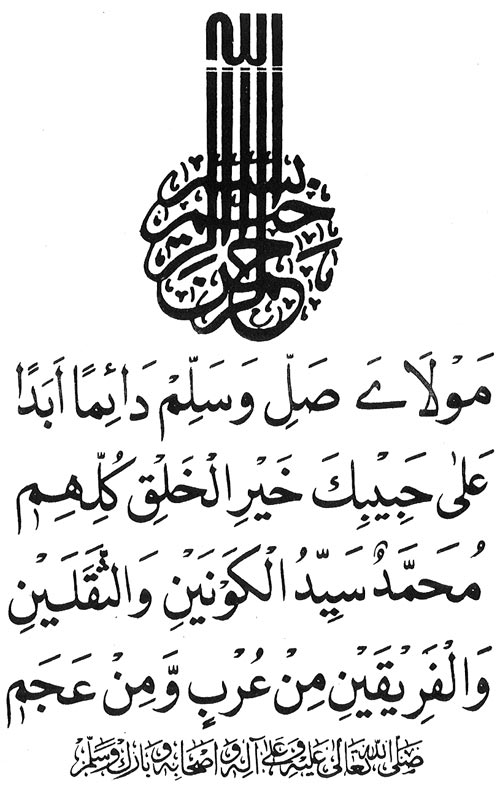 بسم الله الرحمن الرحيم
مَوْلَايَ صَلِّ وَسَلِّمْ دَائِمًا أَبَدًا
عَلٰى حَبِيْبِكَ خَيْرِ الْخَلْقِ كُلِّهِمِ
مُحَمَّدٌ سَيِّدُ الْكَوْنَيْنِ وَالثَّقَلَيْنِ
وَالْفَرِيْقَيْنِ مِنْ عُرْبٍ وَّمِنْ عَجَمِ
صَلَّى اللهُ تَعَالٰى عَلَيْهِ وَعَلٰى آلِهٖ وَاَصْحَابِهٖ وَبَارَكَ وَسَلَّمَ